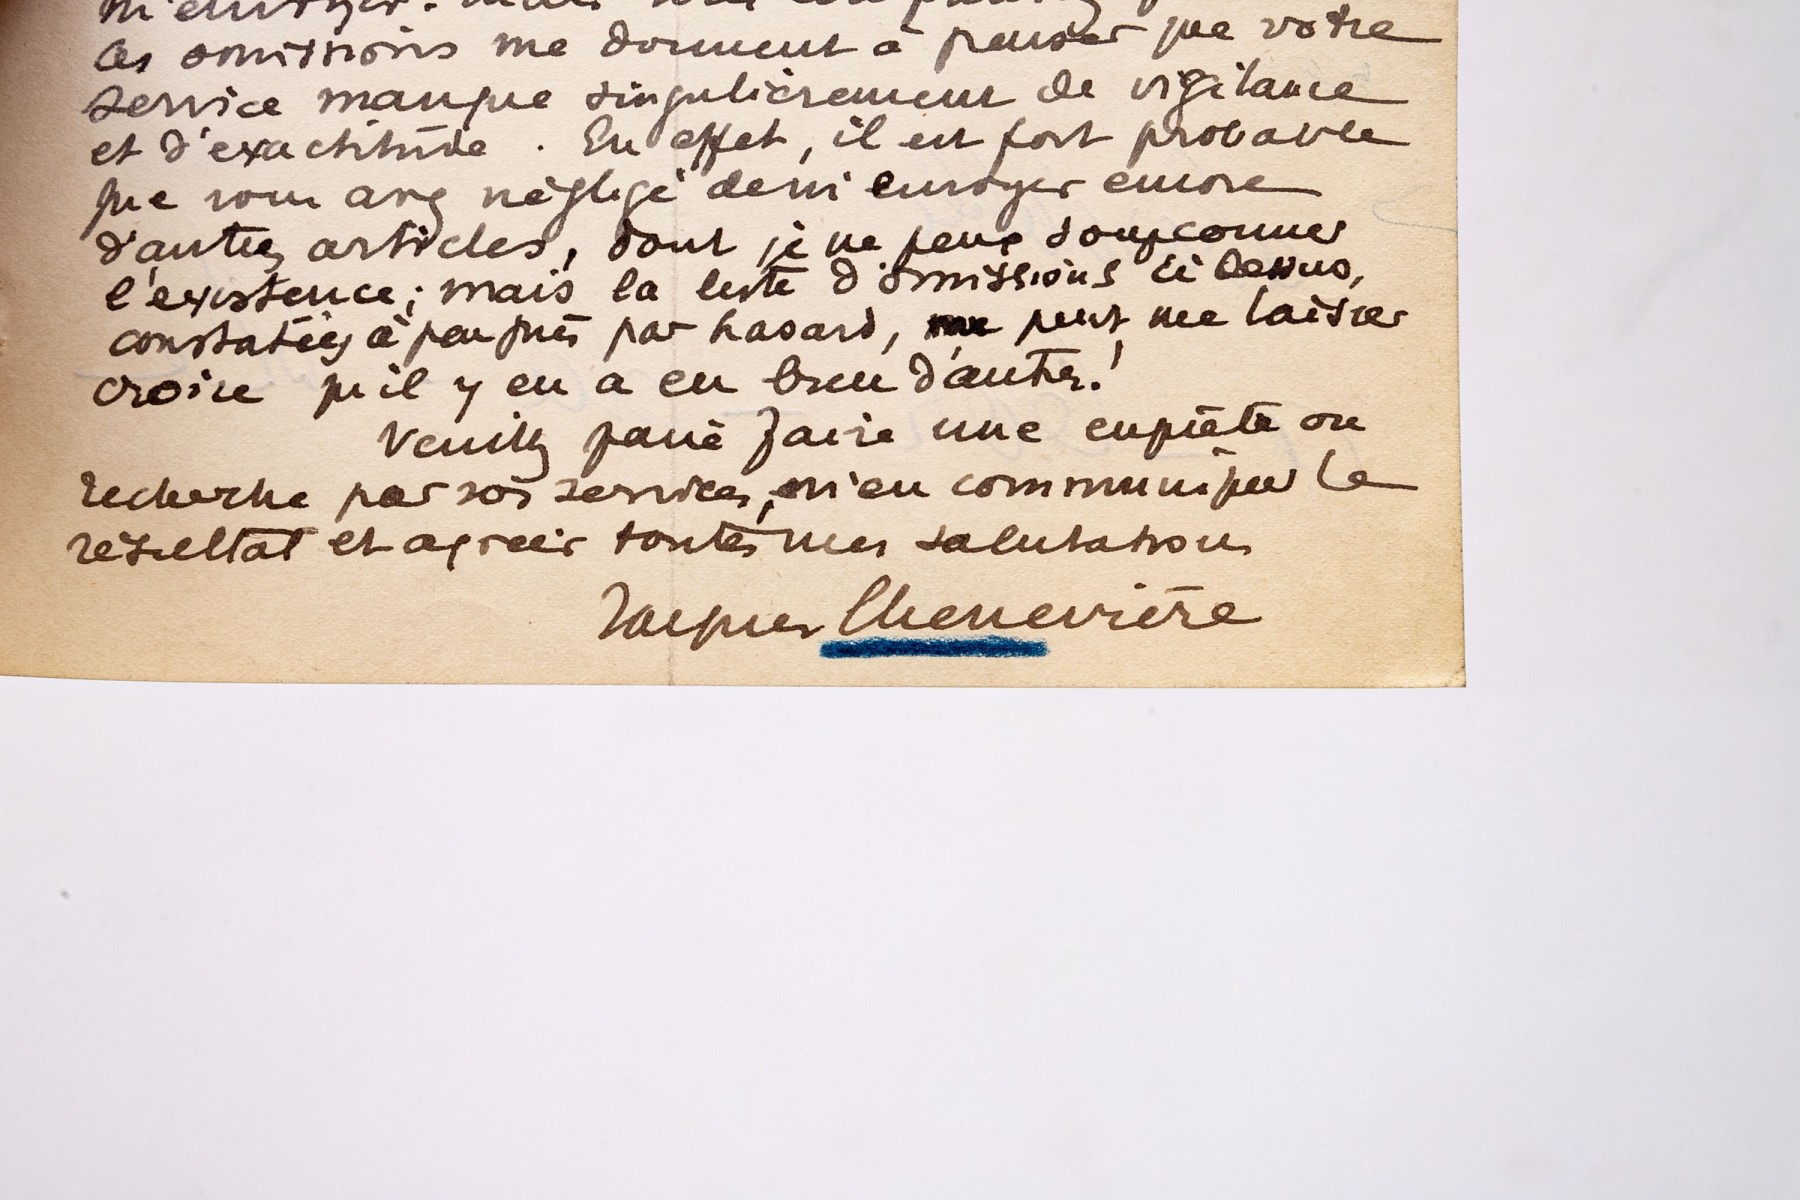 m'envoyer. Mais
Ces omissions me donnent à penser que votre
service manque singulièrement de vigilance
et d'exactitude. En effet, il est fort probable
que vous avez négligé de m'envoyer encore
d'autres articles, dont je ne peux soupçonner
l'existence; mais la liste d'omissions ci dessus,
constatées à peu près par hasard, peut me laisser
croire qu'il y en a eu bien d'autres!
Veuillez faire une enquête ou
recherche par vos services, m'en communiquer le
résultat et agréer toutes mes salutations
Jacques Chenevière